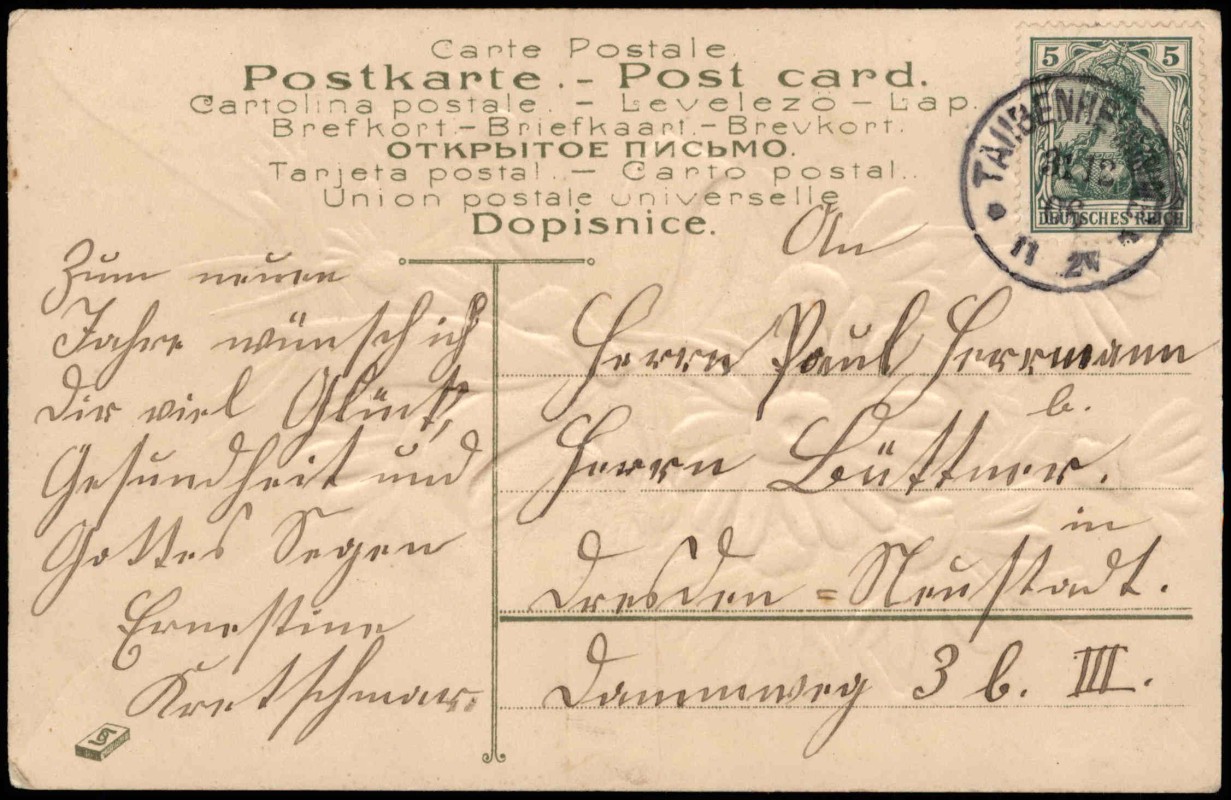 Carte Postale.
Postkarte. - Post card.
Cartolina postale. - Levelezö - Lap.
Brefkort. - Briefkaart. - Brevkort.
ОТКРЫТОЕ ПИСЬМО.
Tarjeta postal. - Carto postal..
Union postale universelle
Dopisnice.
5 5
DEUTSCHES REICH
31.12
06
11
An
Zum neuen
Jahre wünsch ich
Dir viel Glück,
Gesundheit und
Gottes Segen
Ernestine
Kretschmar.
Herrn Paul Herrmann
b.
Herrn Büttner.
in
Dresden=Neustadt.
Dammweg 3 b. III.